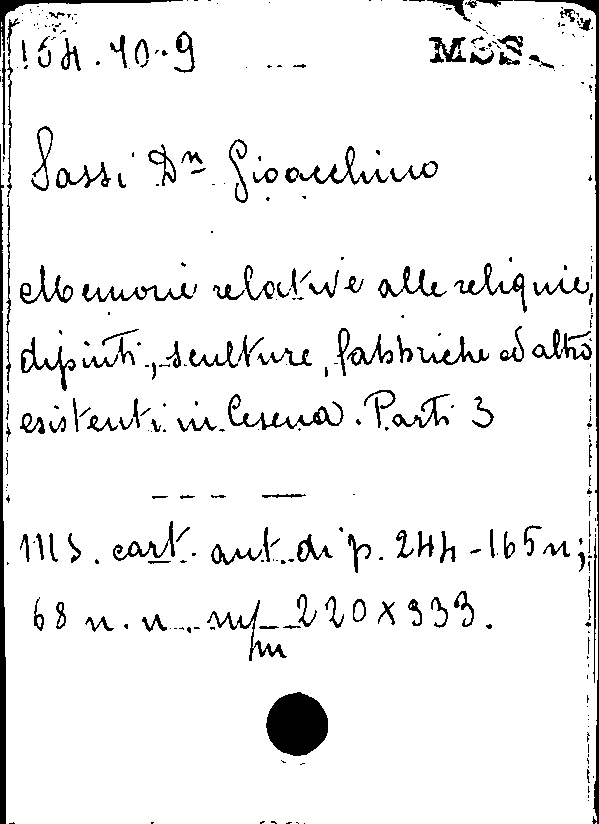 164.40.9 MSS.
Sassi Dn Gioacchino
Memorie relative alle reliquie,
dipinti, sculture, fabbriche ed altro
esistenti in Cesena. Parti 3
MS. cart. aut. di p. 244-165 n;
68 n. n. m/m 220 x 333.